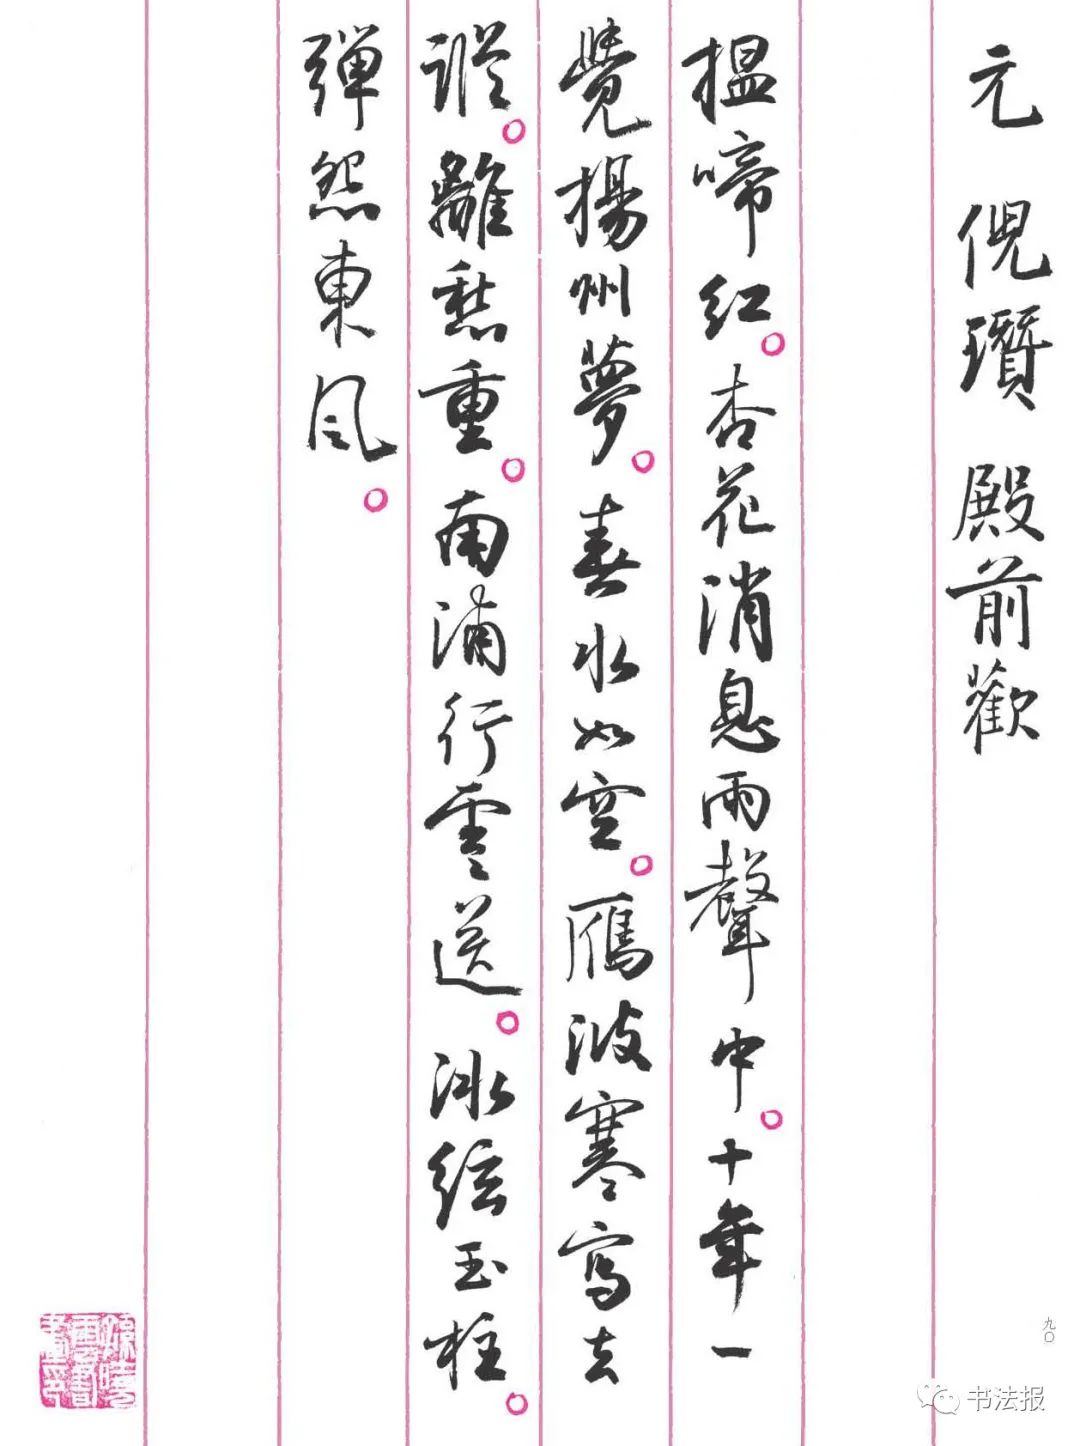 元 倪瓚 殿前歡
揾啼紅。杏花消息雨聲中。十年一
覺揚州夢。春水如空。鴈波寒寫去
蹤。離愁重。南浦行雲送。冰絃玉柱。
彈怨東風。
九〇
书法报